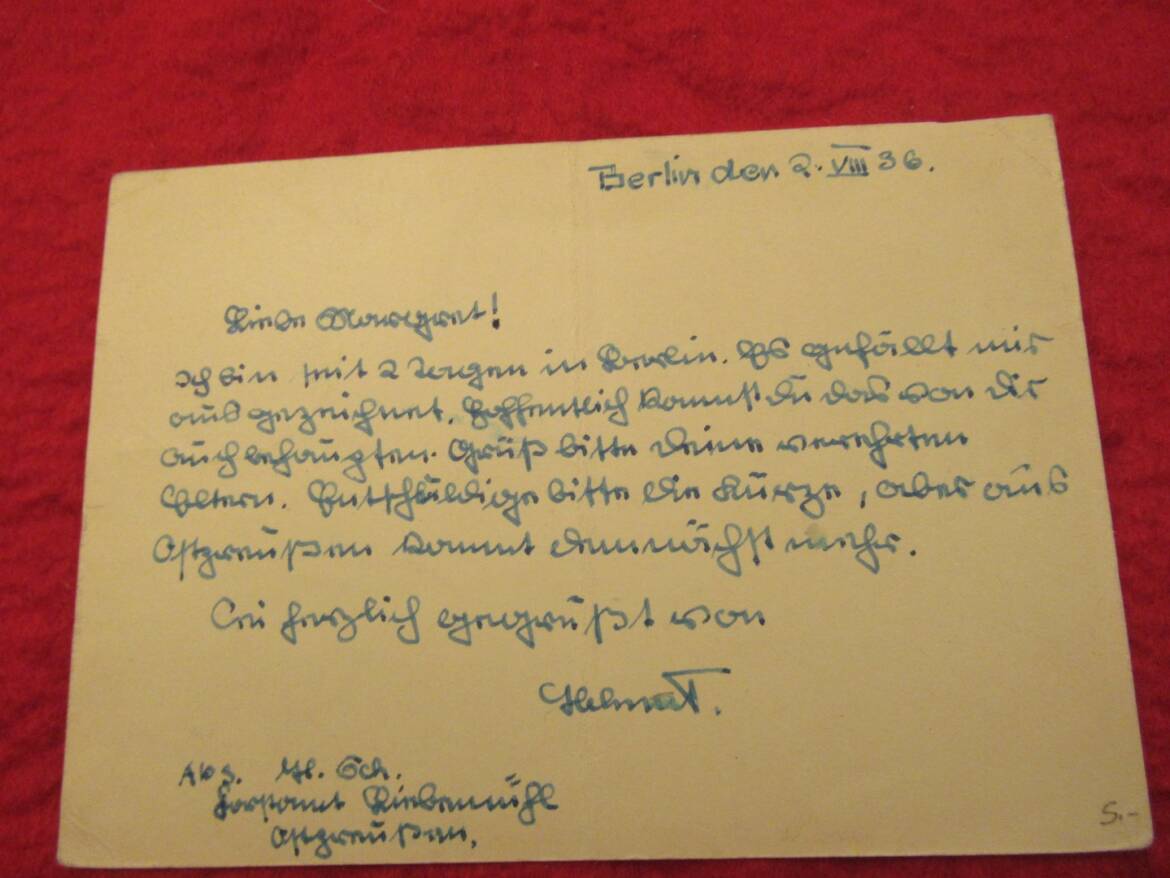 Berlin den 2. VIII 36.
Liebe Margret!
Ich bin seit 2 Tagen in Berlin. Es gefällt mir
ausgezeichnet. Hoffentlich kannst du das von dir
auch behaupten. Grüß bitte deine verehrten
Eltern. Entschuldige bitte die Kürze, aber aus
Ostpreußen kommt demnächst mehr.
Sei herzlich gegrüßt von
Helmut.
Abs. H. Sch.
Forstamt Liebemühl
Ostpreußen.
5.-